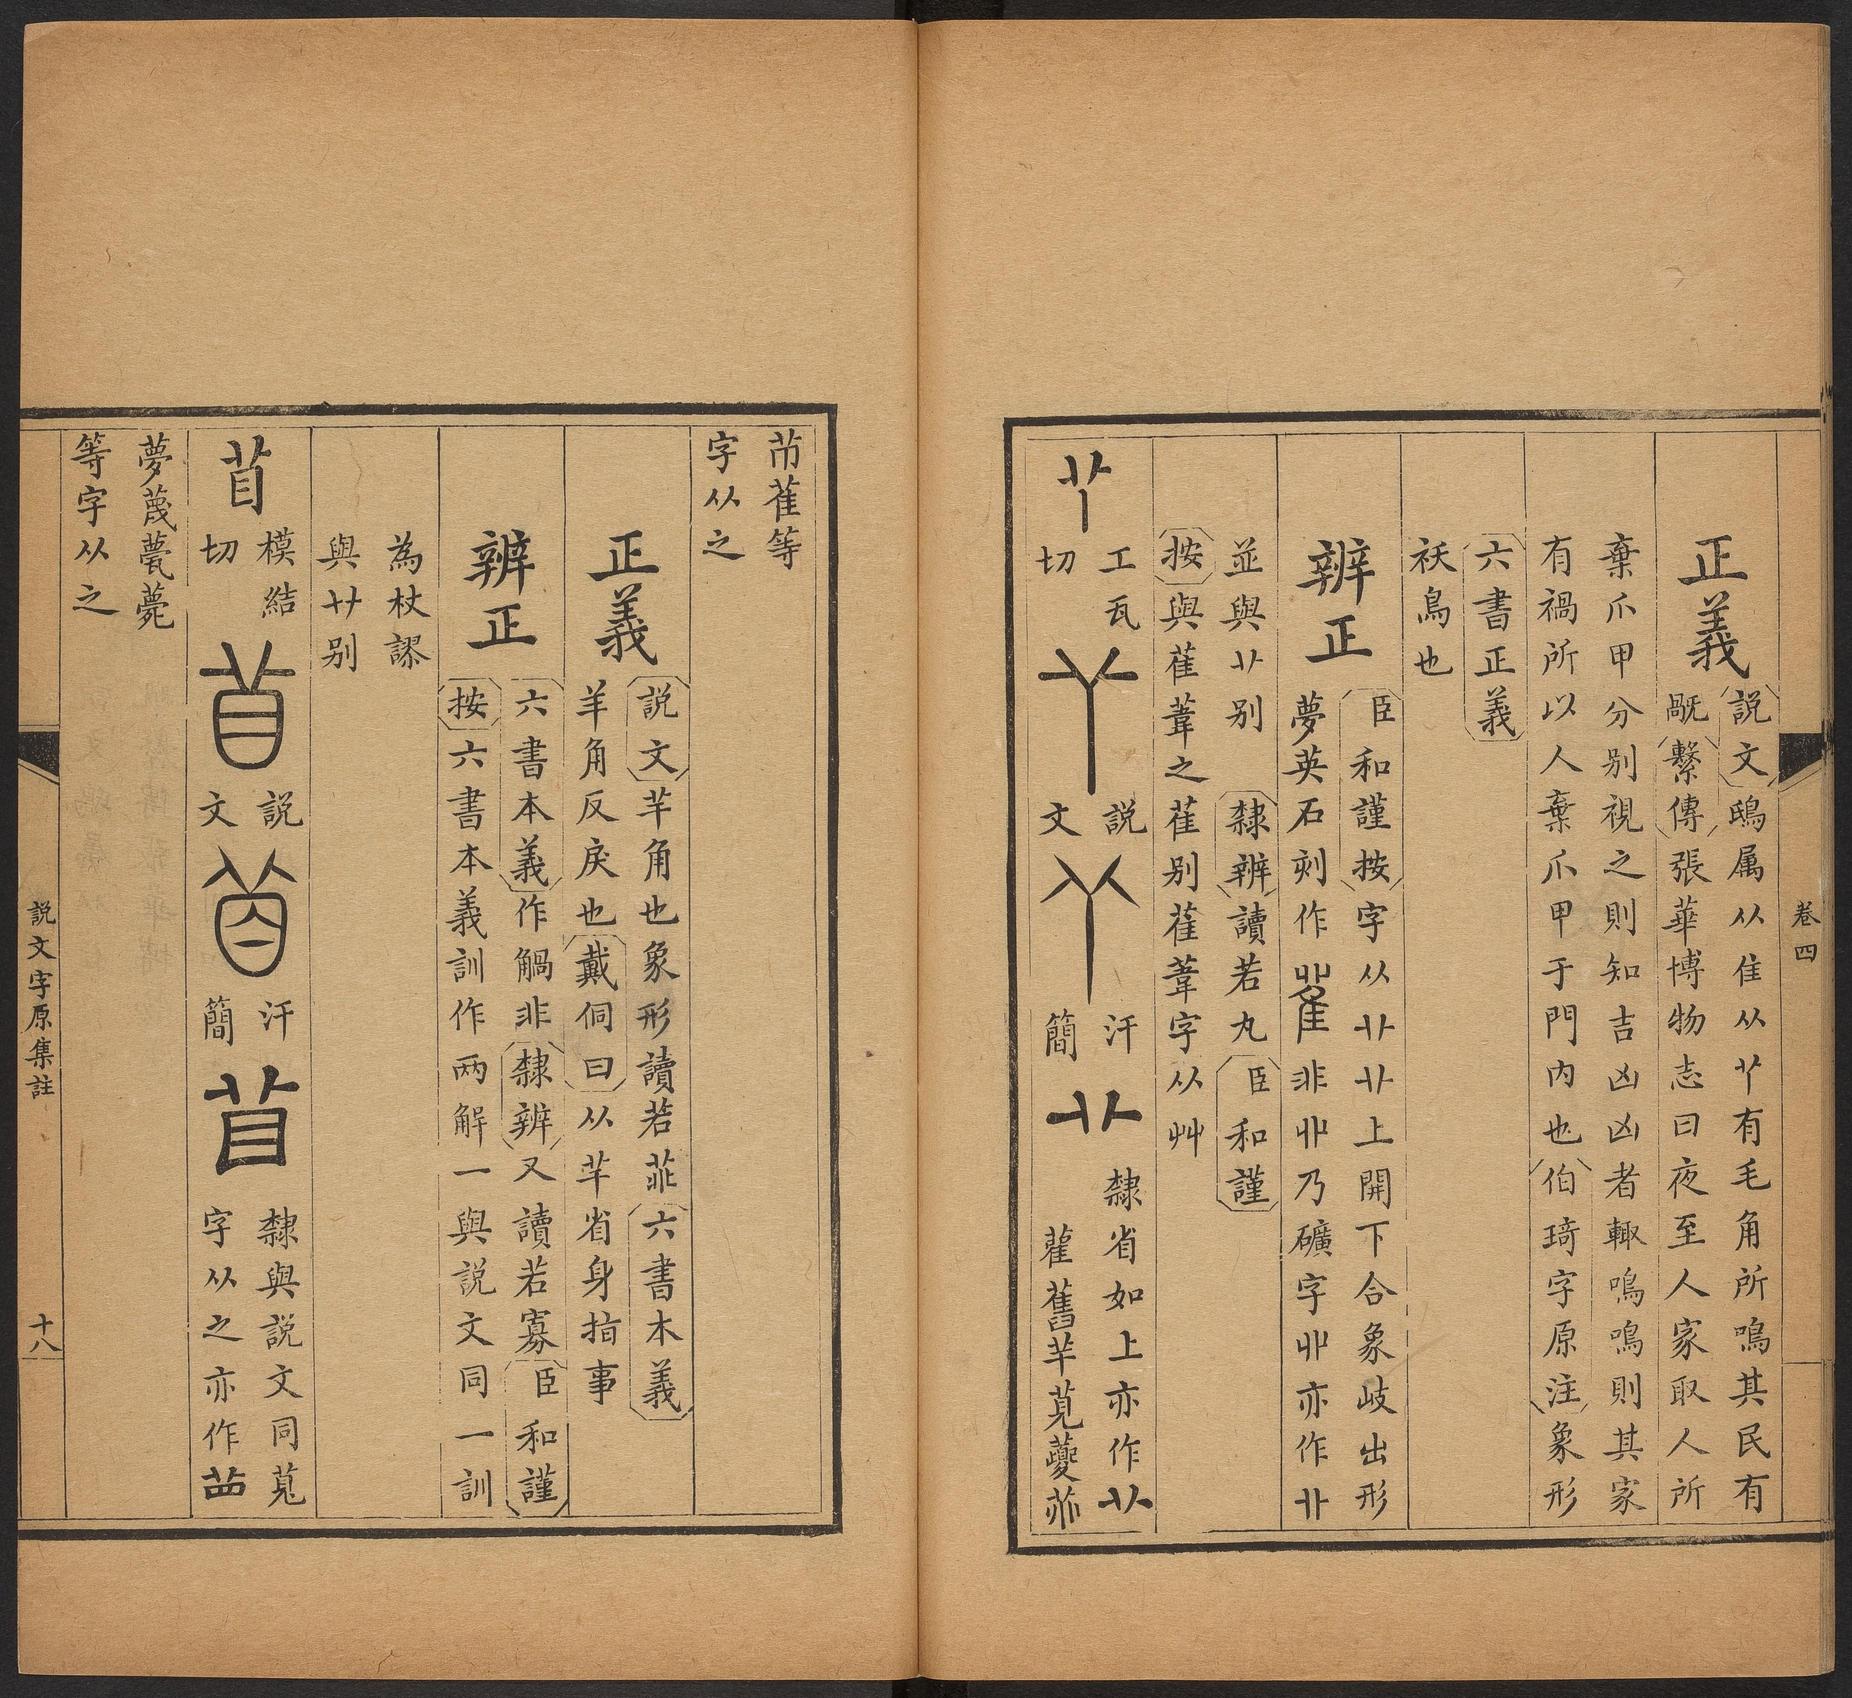 卷四
正義
説文鴟属从隹从𦫳有毛角所鳴其民有
旤繫傳張華博物志曰夜至人家取人所
棄爪甲分别視之則知吉凶凶者輙鳴鳴則其家
有禍所以人棄爪甲于門内也伯琦字原注象形
六書正義
祅鳥也
辨正
臣和謹按字从卝卝上開下合象岐出形
夢英石刻作雈非丱乃礦字丱亦作卝
並與䒑别隸辨讀若丸臣和謹
按與萑葦之萑别萑葦字从艸
𦫳
工瓦
切
説
文
汗
簡
隸省如上亦作䒑
雚舊芈莧蘷𦬆
芇萑等
字从之
正義
説文𦍌角也象形讀若𦮃六書本義
羊角反戾也戴侗曰从芈省身指事
辨正
六書本義作觸非隸辨又讀若寡臣和謹
按六書本義訓作兩解一與説文同一訓
為杖謬
與廿别
苜
模結
切
説
文
汗
簡
隸與説文同莧
字从之亦作𦭝
夢蔑薨薧
等字从之
説文字原集註
十八